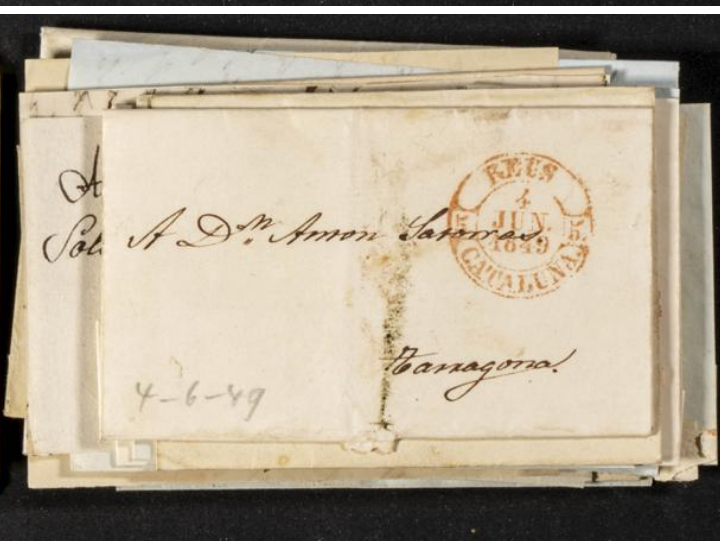 REUS
4
JUN.
1849
CATALUÑA
A Dn. Anton
Tarragona.
4-6-49